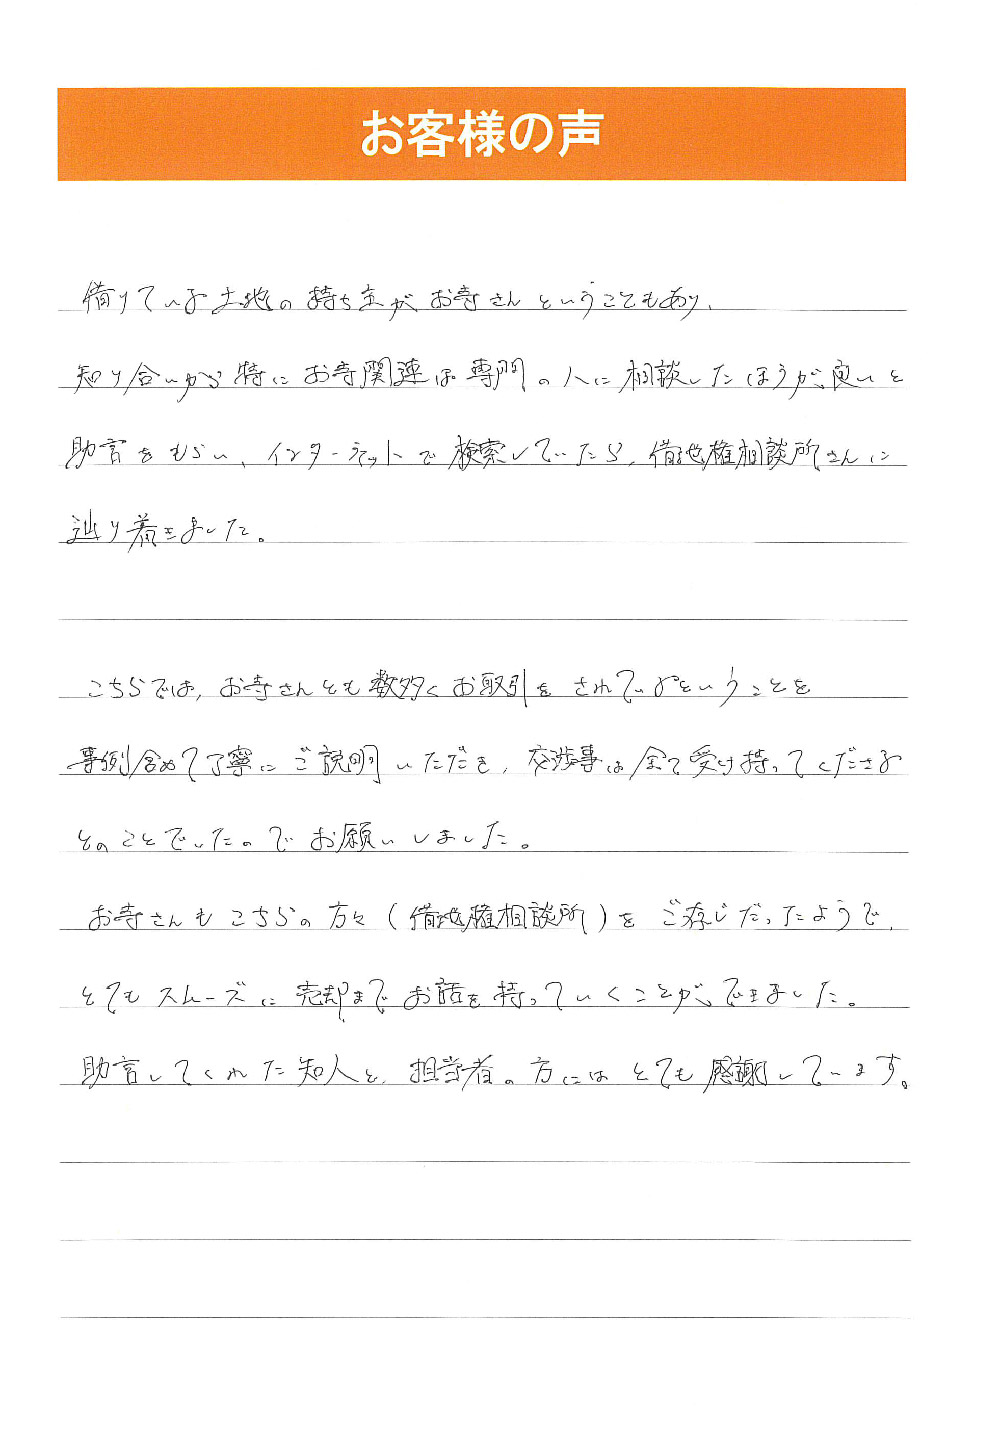 お客様の声
借りている土地の持ち主が、お寺さんということもあり、
知り合いから特にお寺関連は専門の人に相談したほうが、良いと
助言をもらい、インターネットで検索していたら、借地権相談所さんに
辿り着きました。
こちらでは、お寺さんとも数多くお取引をされているということを
事例含めて丁寧にご説明いただき、交渉事は全て受け持ってくださる
とのことでしたのでお願いしました。
お寺さんもこちらの方々(借地権相談所)をご存じだったようで、
とてもスムーズに売却までお話を持っていくことが、できました。
助言してくれた知人と、担当者の方にはとても感謝しています。